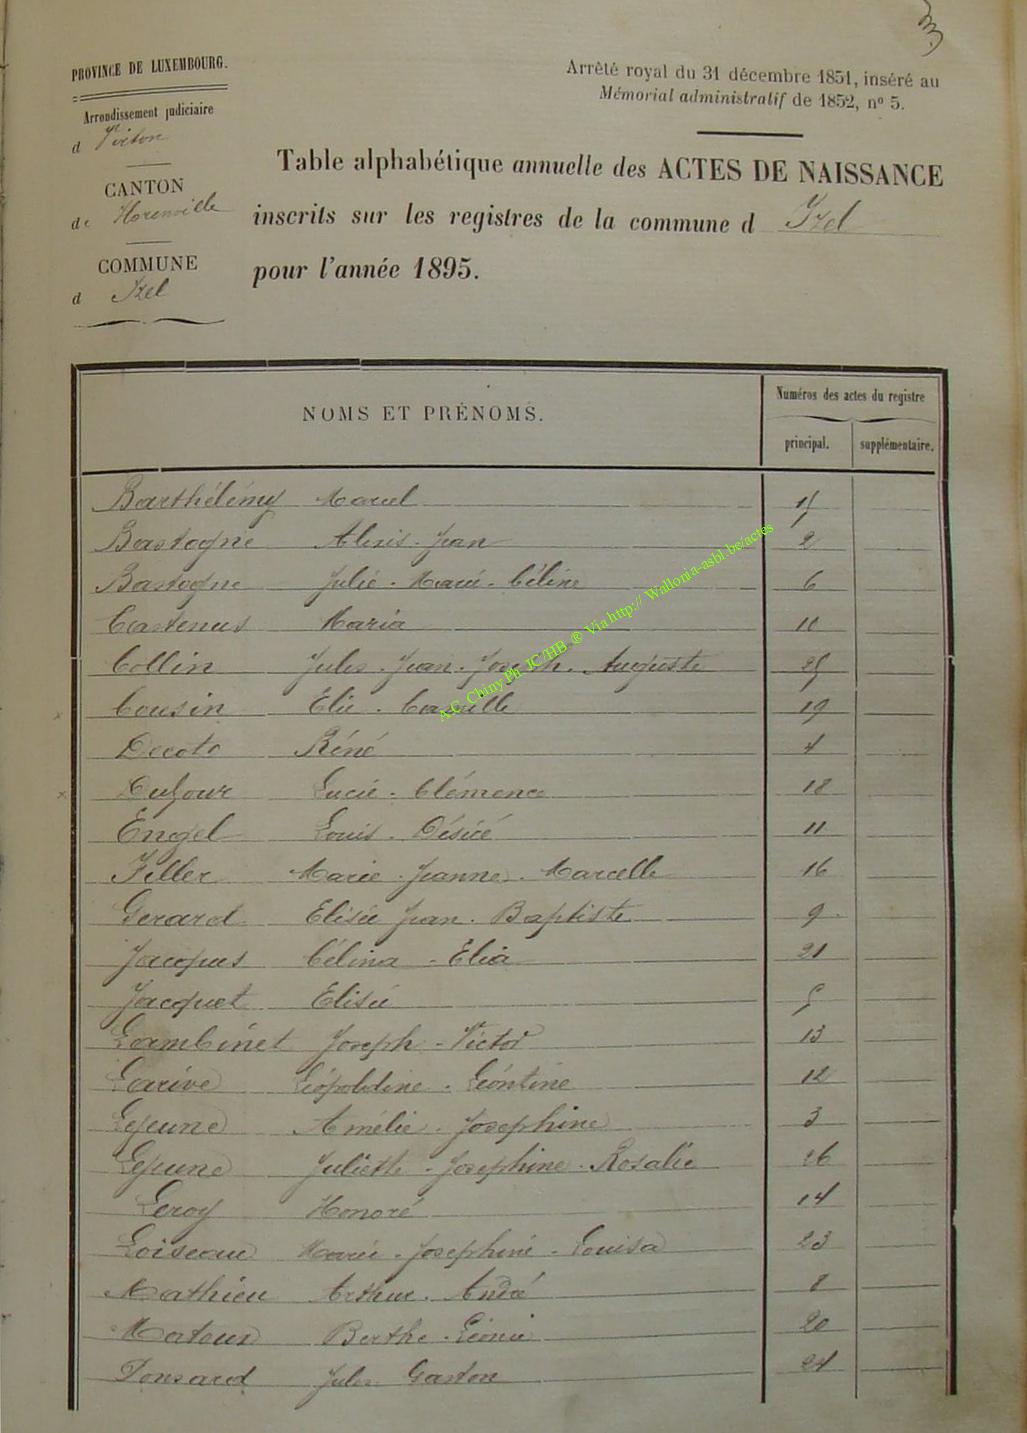 PROVINCE DE LUXEMBOURG.
Arrondissement judiciaire
d Virton
CANTON
de Florenville
COMMUNE
d Izel
Arrêté royal du 31 décembre 1851, inséré au
Mémorial administratif de 1852, nº 5.
Table alphabétique annuelle des ACTES DE NAISSANCE
inscrits sur les registres de la commune d Izel
pour l'année 1895.
NOMS ET PRÉNOMS.
Numéros des actes du registre
principal. supplémentaire.
Barthélémy Marcel 15
Bastogne Alexis-Jean 2
Bastogne Julie-Marie-Céline 6
Castenus Maria 10
Collin Jules-Jean-Joseph-Auguste 25
Cousin Elie-Camille 19
Decoto Réné 4
Dufour Lucie-Clémence 18
Engel Louis-Désiré 11
Filler Marie-Jeanne-Marcelle 16
Gerard Elisée Jean-Baptiste 9
Jacques Célina-Elia 21
Jacquet Elisée 5
Lambinet Joseph-Victor 13
Larive Léopoldine-Léontine 12
Lejeune Amélie-Joséphine 3
Lejeune Juliette-Joséphine-Rosalie 26
Leroy Honoré 14
Loiseau Marie-Joséphine-Louisa 23
Mathieu Arthur-André 8
Berthe-Léonie 20
Ponsard Jules Gaston 24
A-C. Chiny Ph. JC/HB ® Via http:// Wallonia-asbl.be/actes